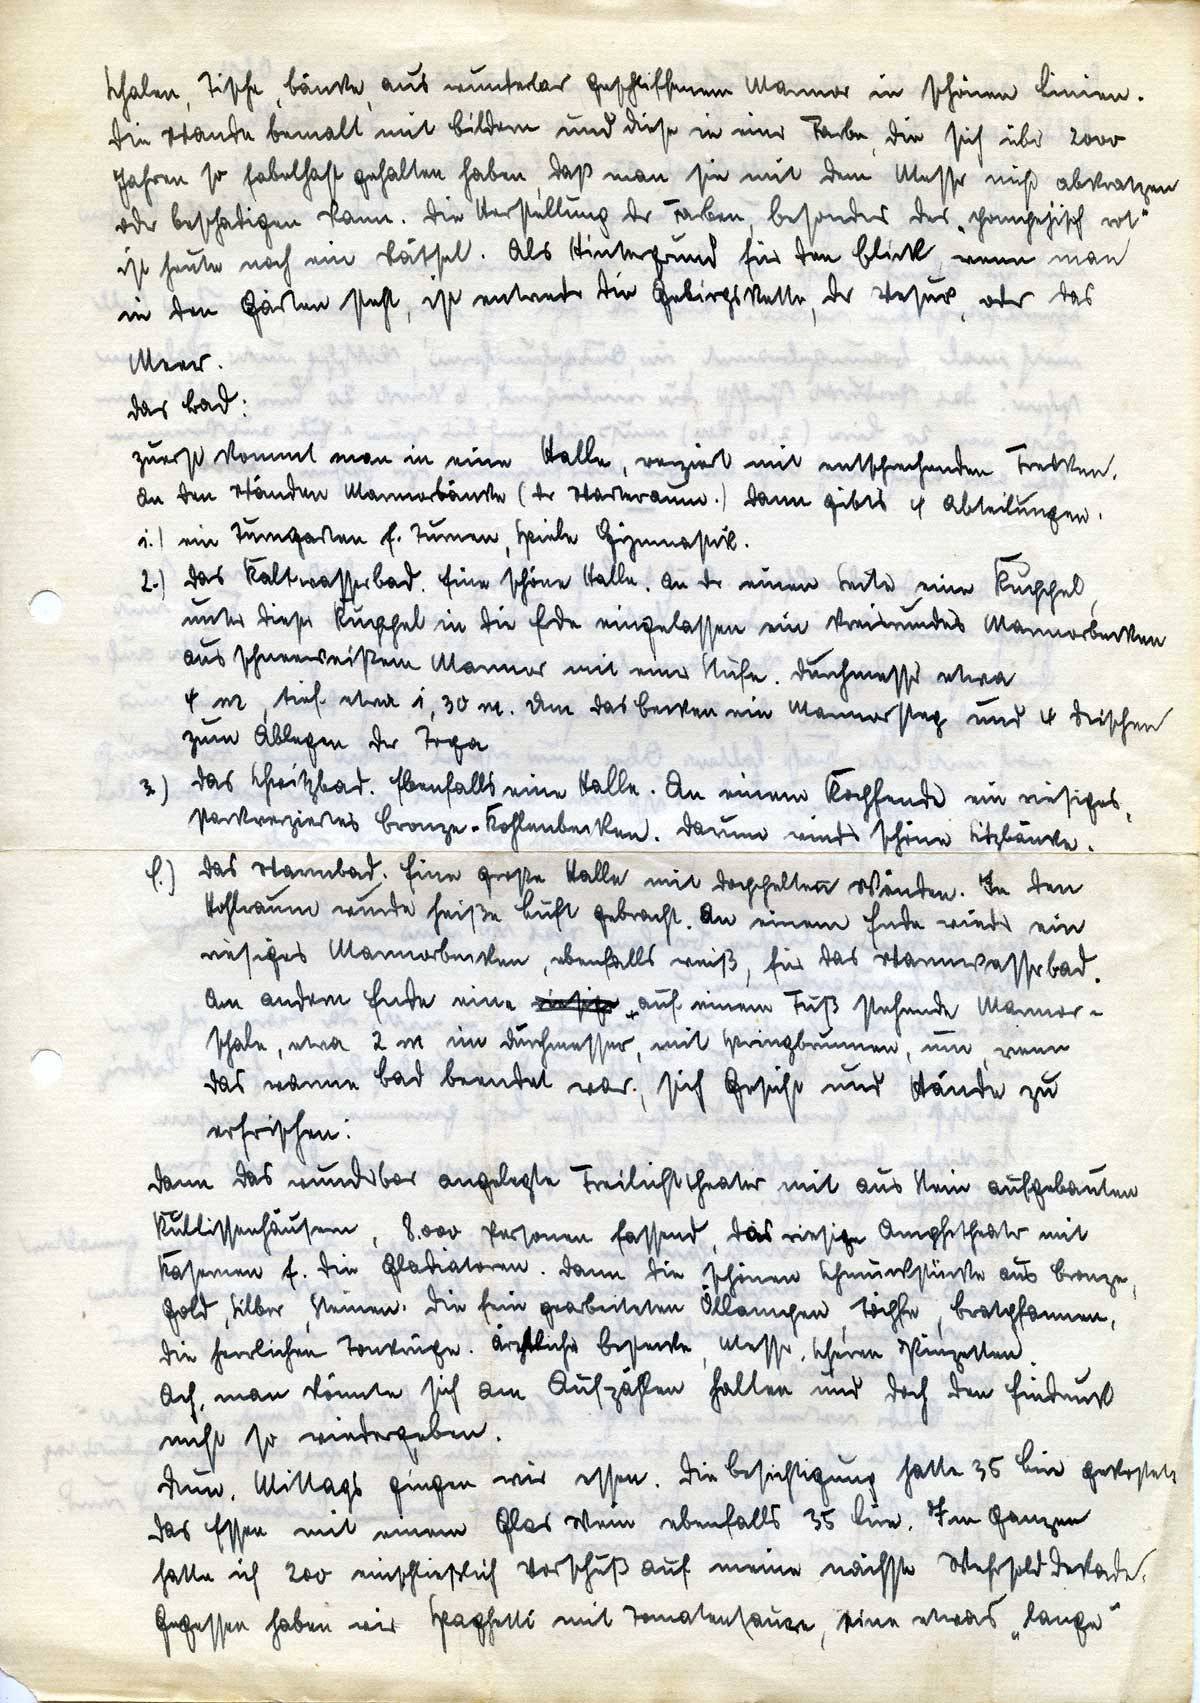 Schalen, Tische, Bänke, aus wunderbar geschliffenem Marmor in schönen Linien.
Die Wände bemalt mit Bildern und diese in einer Farbe, die sich über 2000
Jahren so fabelhaft gehalten haben, daß man sie mit dem Messer nicht abkratzen
oder beschädigen kann. Die Herstellung der Farben, besonders des „pompejisch rot“
ist heute noch ein Rätsel. Als Hintergrund für den Blick, wenn man
in den Gärten steht, ist entweder die Gebirgskette, der Vesuv, oder das
Meer.
Das Bad:
Zuerst kommt man in eine Halle, verziert mit entsprechenden Fresken.
An den Wänden Marmorbänke (der Warteraum.) Dann gibts 4 Abteilungen.
1.) ein Turngarten f. Turnen, Spiele Gymnastik.
2.) Das Kaltwasserbad. Eine schöne Halle. An der einen Seite eine Kuppel,
unter dieser Kuppel in die Erde eingelassen ein kreisrundes Marmorbecken
aus schneeweißem Marmor mit einer Stufe. Durchmesser etwa
4 m, tief etwa 1,30 m. Um das Becken ein Marmorsteg und 4 Nischen
zum Ablegen der Toga
3.) Das Schwitzbad. Ebenfalls eine Halle. An einem Kochfende ein riesiges,
starkverziertes Bronze-Kohlenbecken. Darum wieder schöne Sitzbänke.
4.) Das Warmbad. Eine große Halle mit doppelten Wänden. In den
Hohlraum wurde heiße Luft gebracht. An einem Ende wieder ein
riesiges Marmorbecken, ebenfalls weiß, für das Warmwasserbad.
Am andern Ende eine auf einem Fuß stehende Marmor-
schale, etwa 2 m im Durchmesser, mit Springbrunnen, um, wenn
das warme Bad beendet war, sich Gesicht und Hände zu
erfrischen.
Dann das wunderbar angelegte Freilichttheater mit aus Stein aufgebauten
Kulissenhäusern, 8.000 Personen fassend, das riesige Amphitheater mit
Kasernen f. die Gladiatoren. Dann die schönen Schmuckstücke aus Bronze,
Gold, Silber, Steinen. Die fein gearbeiteten Öllampen, Töpfe, Bratpfannen,
die herrlichen Tonkrüge. Ärztliche Bestecke, Messer, Scheren Pinzetten.
Ach, man könnte sich am Aufzählen halten und doch den Eindruck
nicht so wiedergeben.
Nun, Mittags gingen wir essen. Die Besichtigung hatte 35 Lire gekostet
das Essen mit einem Glas Wein ebenfalls 35 Lire. Im Ganzen
hatte ich 200 einschließlich Vorschuß auf meine nächste Wehrsold Dekade.
Gegessen haben wir Spaghetti mit Tomatensauce, eine etwas „lange“